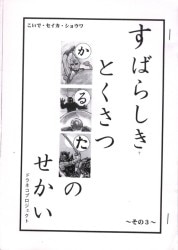 こいで・セイカ・ショウワ
すばらしき
とくさつ
かるた
の
せかい
ドラネコプロジェクト
～その３～